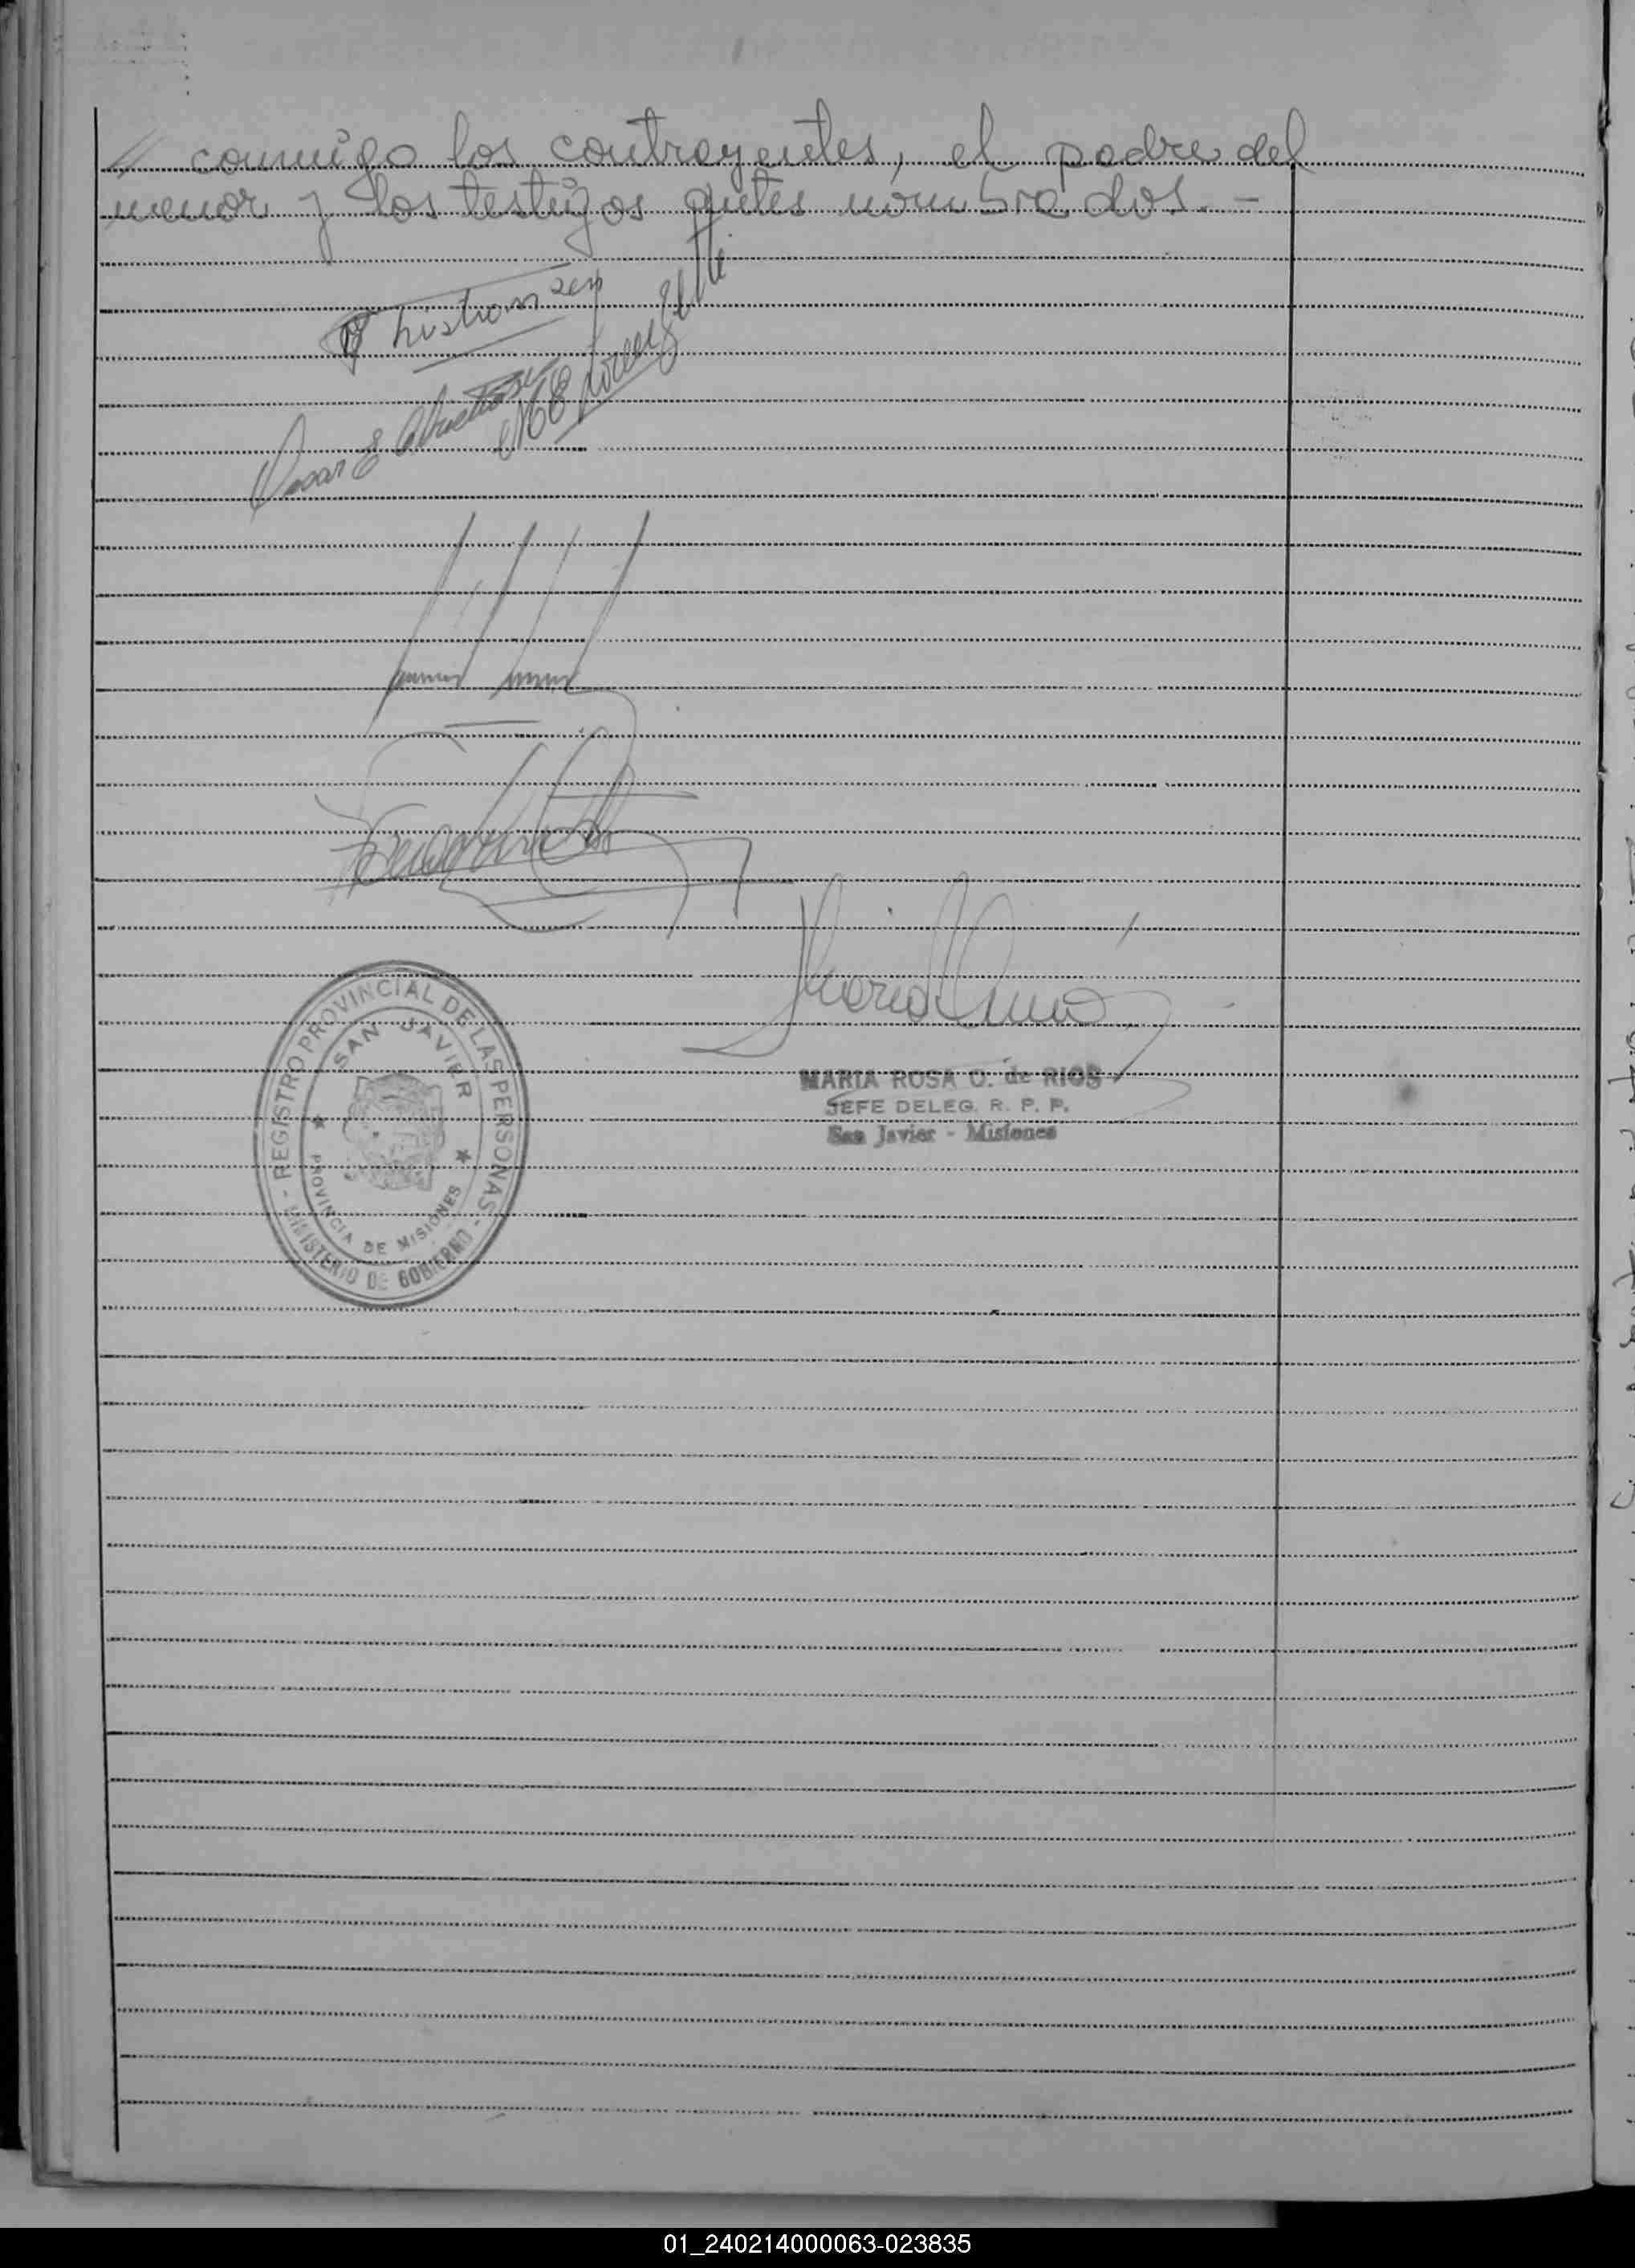 // conmigo los contrayentes, el padre del
menor y los testigos antes nombrados. -
Oscar E
REGISTRO PROVINCIAL DE LAS PERSONAS
SAN JAVIER
PROVINCIA DE MISIONES
MINISTERIO DE GOBIERNO
MARIA ROSA O. de RIOS
JEFE DELEG. R. P. P.
San Javier - Misiones
01_240214000063-023835